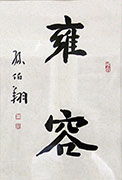 雍容
孫伯翔